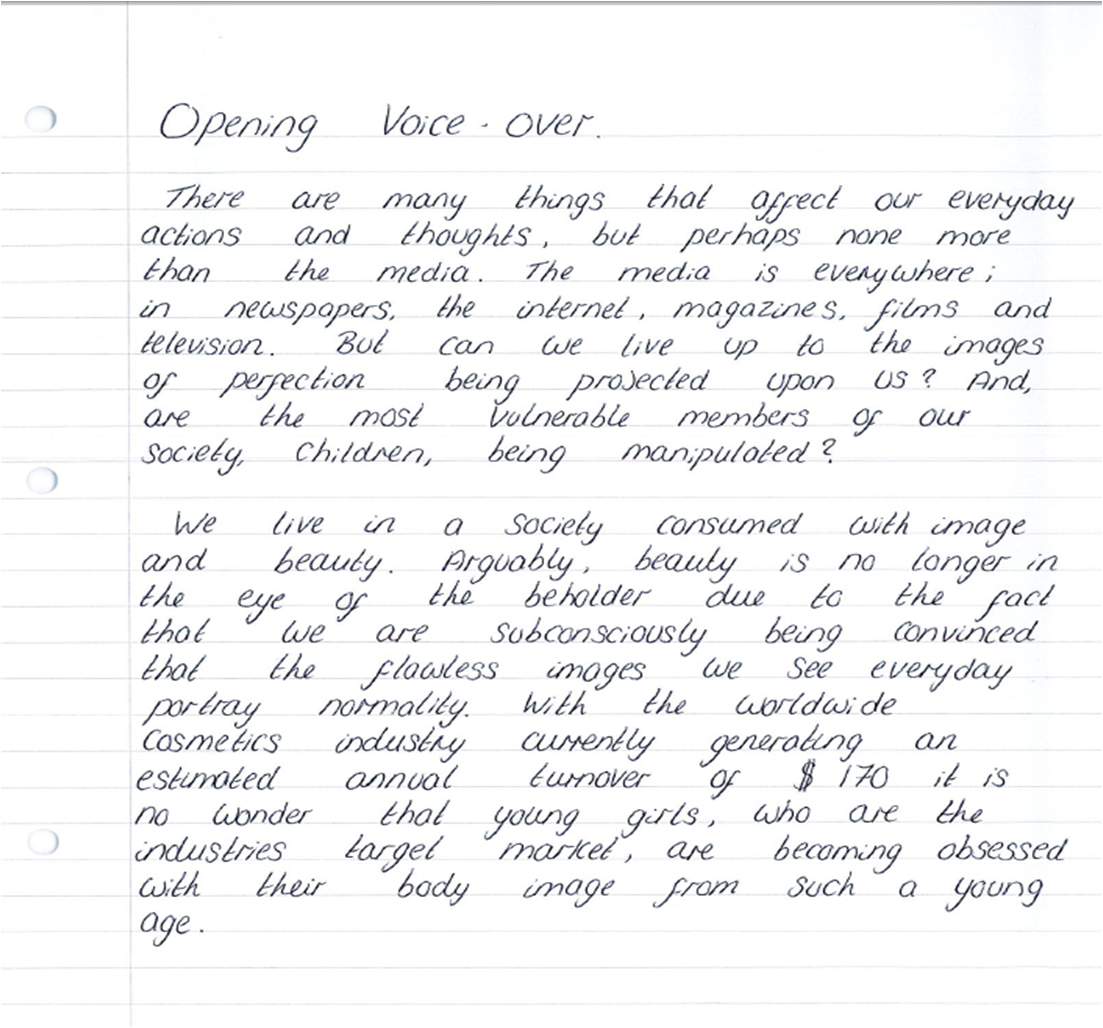 Opening Voice-over.
There are many things that affect our everyday
actions and thoughts, but perhaps none more
than the media. The media is everywhere;
in newspapers, the internet, magazines, films and
television. But can we live up to the images
of perfection being projected upon us? And,
are the most vulnerable members of our
society, children, being manipulated?
We live in a society consumed with image
and beauty. Arguably, beauty is no longer in
the eye of the beholder due to the fact
that we are subconsciously being convinced
that the flawless images we see everyday
portray normality. With the worldwide
cosmetics industry currently generating an
estimated annual turnover of $170 it is
no wonder that young girls, who are the
industries target market, are becoming obsessed
with their body image from such a young
age.